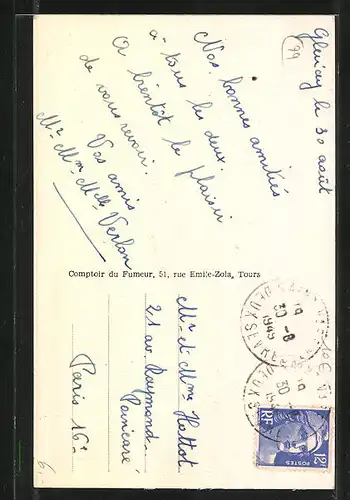 le 30 août
(79)
Nos bonnes amitiés
à tous les deux
A bientôt le plaisir
de vous revoir.
Vos amis
Mr Mme Melle Verlon
Comptoir du Fumeur, 51, rue Emile-Zola, Tours
Mr et Mme Hottot
21 av. Raymond-
Poincaré
Paris 16e
30 -8
1949
DEUX SEVRES
30
12F
RF
POSTES